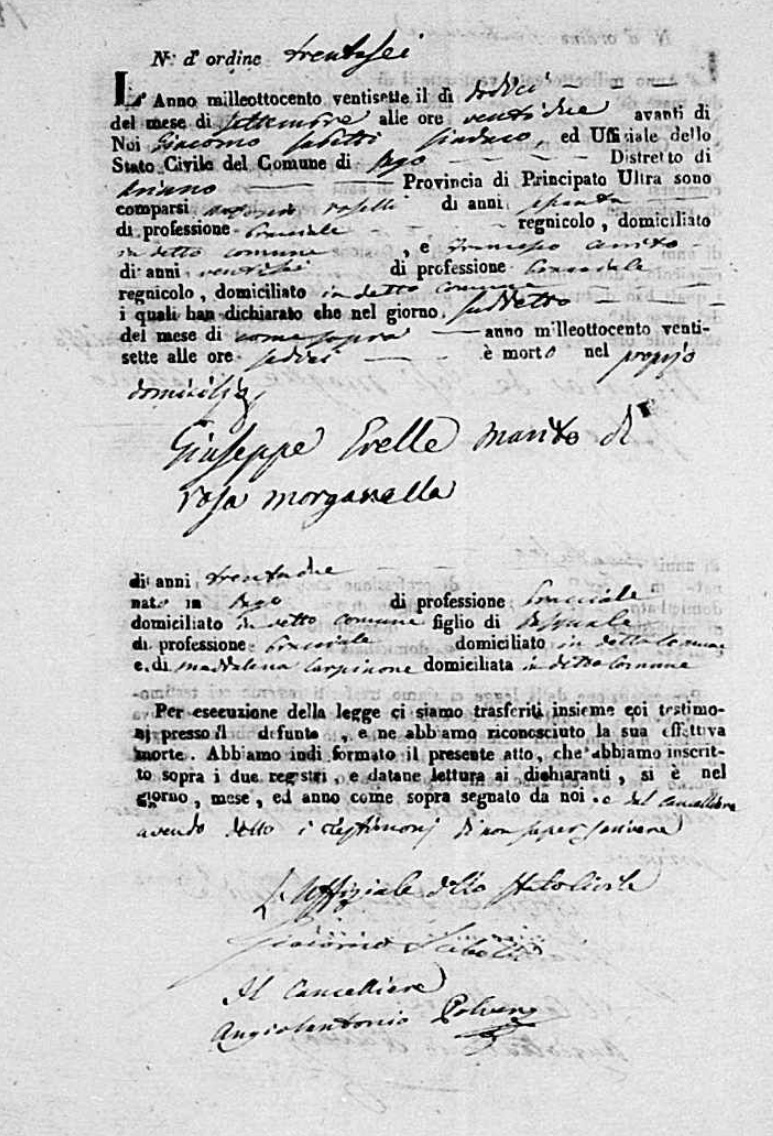 N.° d' ordine trentasei
L' Anno milleottocento ventisette il dì dodici
del mese di settembre alle ore ventidue avanti di
Noi Giacomo sindaco, ed Uffiziale dello
Stato Civile del Comune di Distretto di
Ariano Provincia di Principato Ultra sono
comparsi di anni
di professione bracciale regnicolo, domiciliato
in detto comune, e Francesco
di anni ventisei di professione bracciale
regnicolo, domiciliato in detto comune
i quali han dichiarato che nel giorno suddetto
del mese di come sopra anno milleottocento venti-
sette alle ore sedici è morto nel proprio
domicilio
Giuseppe marito di
rosa morganella
di anni trentadue
nato in di professione bracciale
domiciliato in detto comune figlio di Pasquale
di professione bracciale domiciliato in detto Comune
e di maddalena Carpinone domiciliata in detto Comune
Per esecuzione della legge ci siamo trasferiti insieme coi testimo-
nj presso il defunto, e ne abbiamo riconosciuto la sua effettiva
morte. Abbiamo indi formato il presente atto, che abbiamo inscrit-
to sopra i due registri, e datane lettura ai dichiaranti, si è nel
giorno, mese, ed anno come sopra segnato da noi. e dal cancelliere
avendo detto i testimonj di non saper scrivere
L'Uffiziale dello stato civile
Giacomo
Il Cancelliere
Angiolantonio